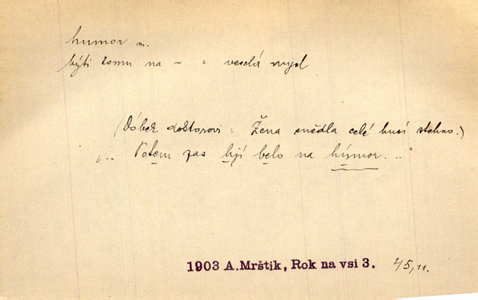 humor m.
býti komu na ~ = veselá mysl
(Dobek doktorovi: Žena snědla celé husí stehno.)
".. Potem zas hjí belo na húmor..."
1903 A. Mrštík, Rok na vsi 3. 45,11.